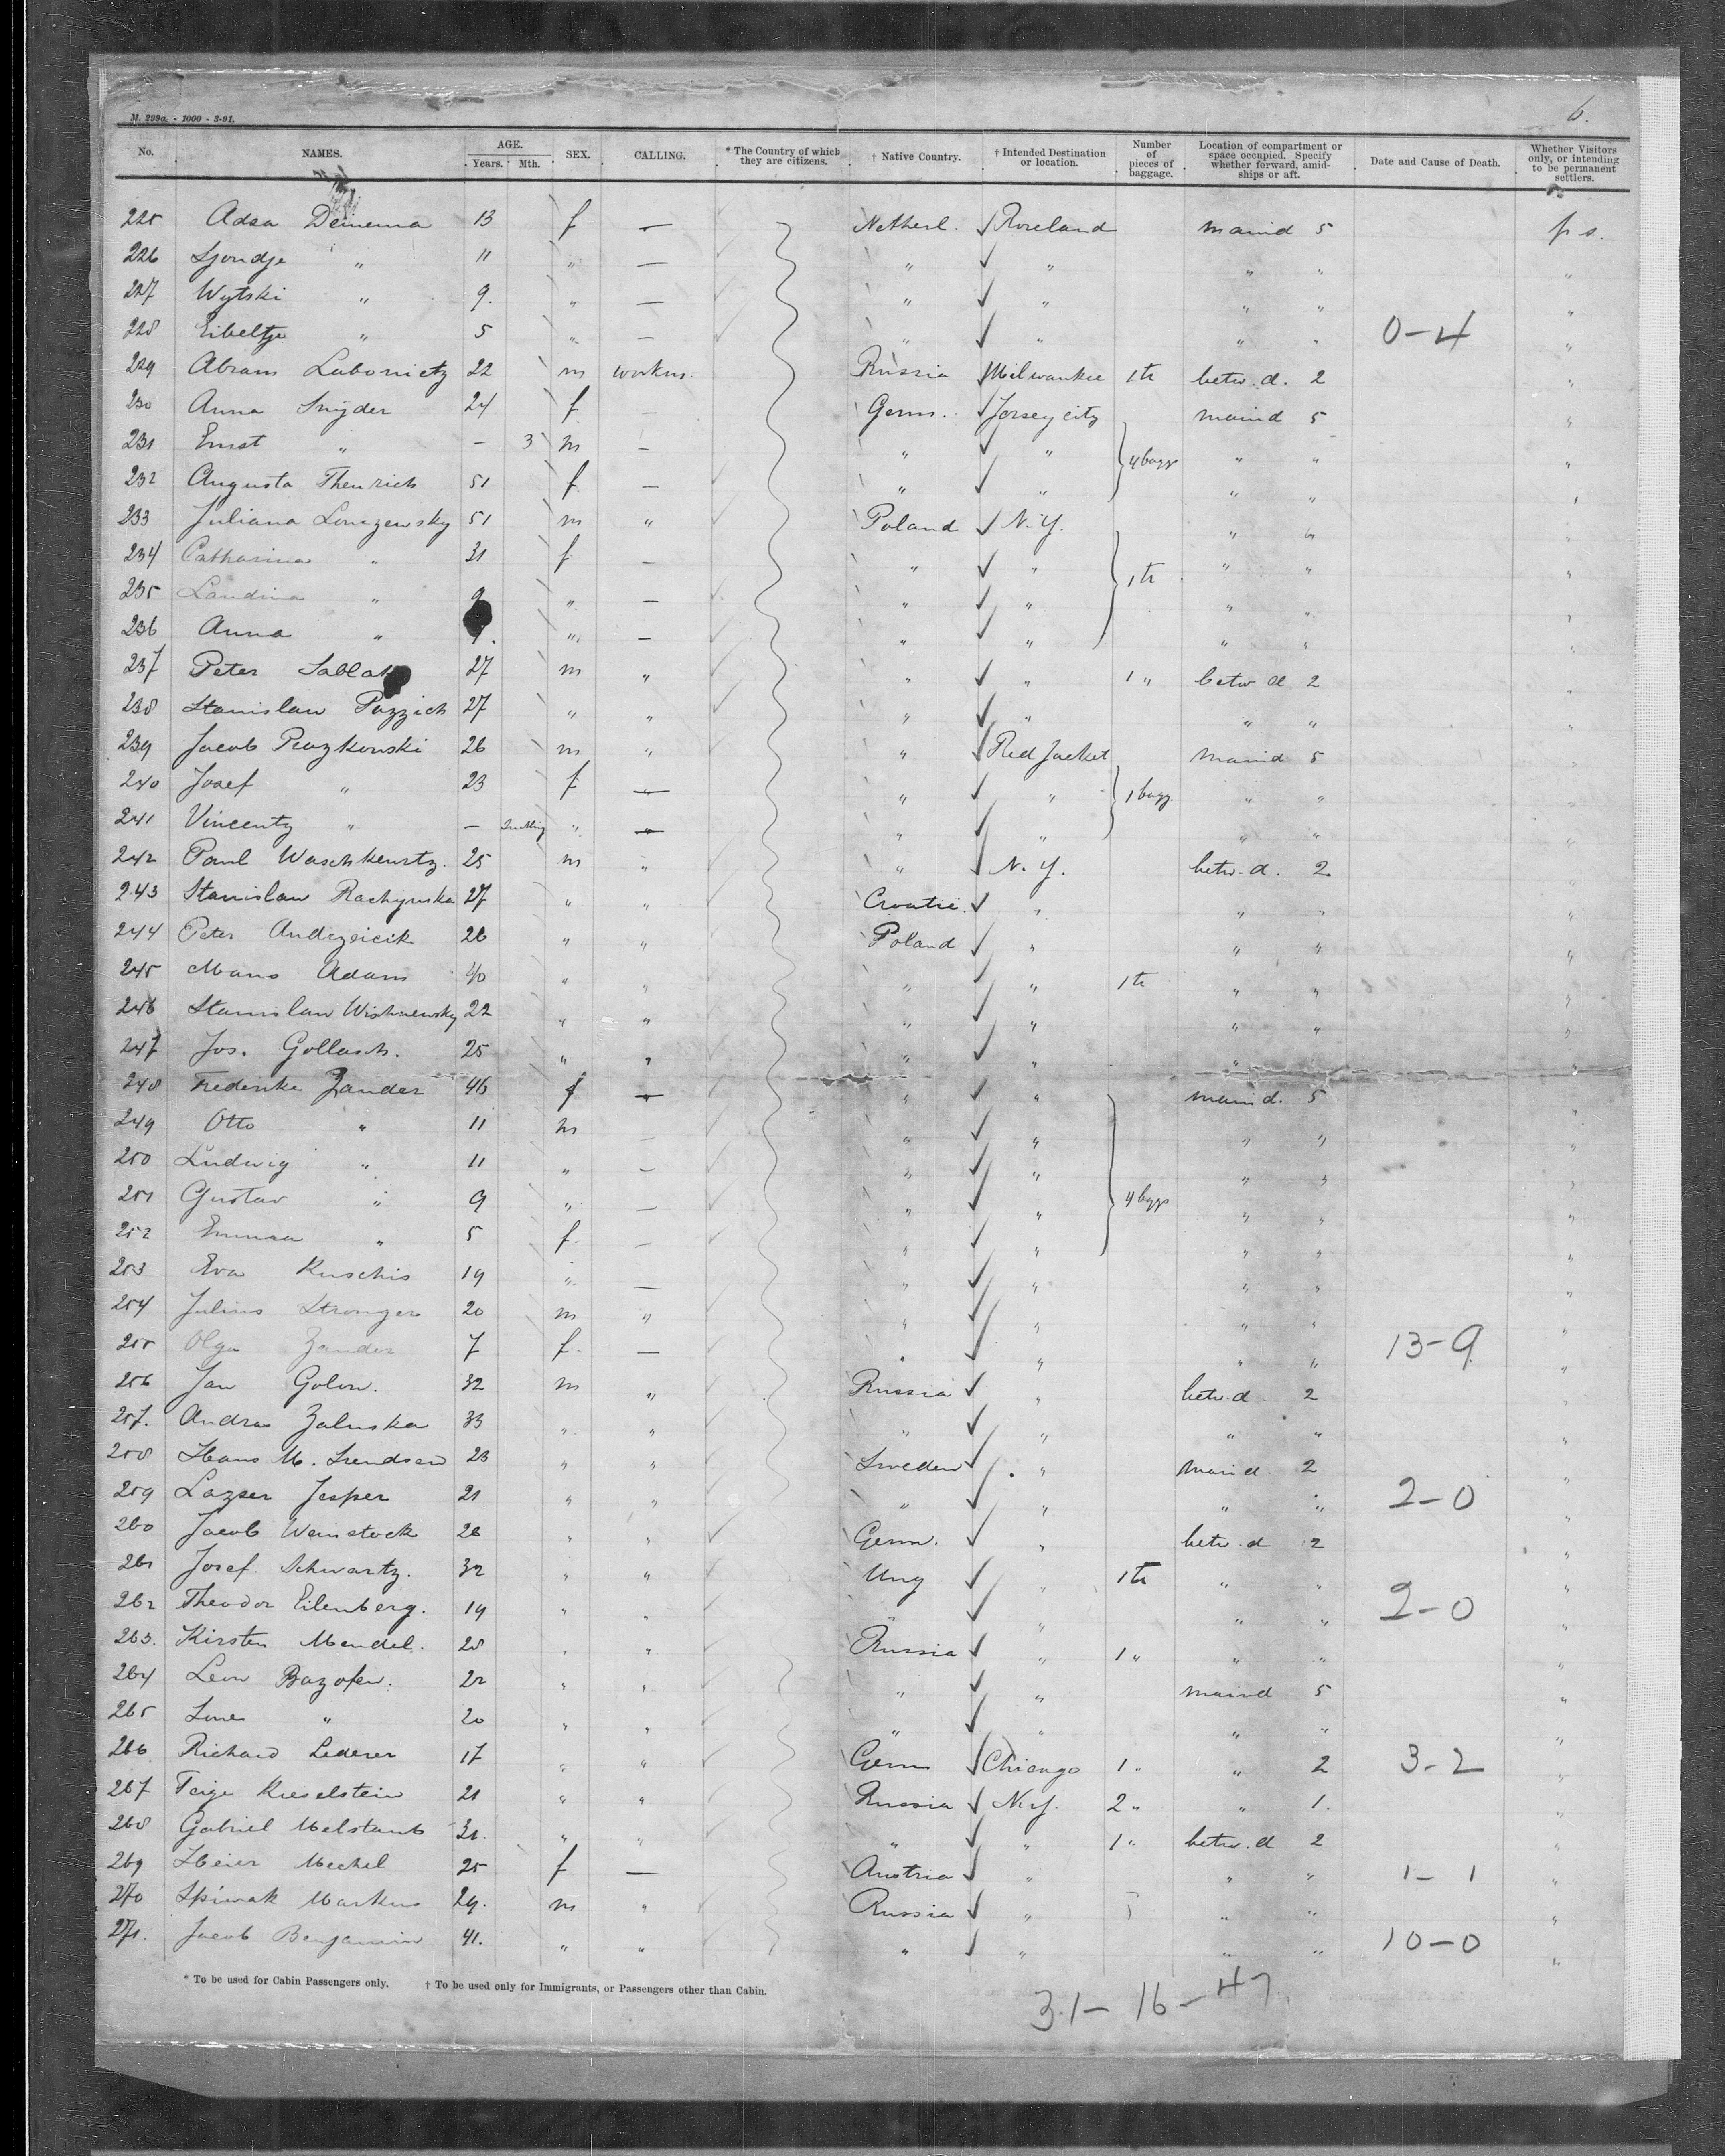 6.
M. 299a. - 1000 - 3-91.
No. NAMES. AGE. Years. Mth. SEX. CALLING. * The Country of which they are citizens. † Native Country. † Intended Destination or location. Number of pieces of baggage. Location of compartment or space occupied. Specify whether forward, amidships or aft. Date and Cause of Death. Whether Visitors only, or intending to be permanent settlers.
225 Adsa Deinema 13 f — Netherl. Roseland maind 5 p s.
226 Sjondje " 11 " — " " " " "
227 Wytski " 9. " — " " " " "
228 Eibeltje " 5 " — " " " " 0-4 "
229 Abram Labonietz 22 m workm. Russia Milwaukee 1 tr betw. d. 2 "
230 Anna Snyder 24 f — Germ. Jersey city maind 5 "
231 Ernst " — 3 m — " " 4 bags " " "
232 Augusta Thenrich 51 f — " " " " "
233 Juliana Lonczewsky 51 m " Poland N.Y. " " "
234 Catharina " 31 f — " " 1 tr " " "
235 Landina " " — " " " " "
236 Anna " " — " " " " "
237 Peter 27 m " " " 1 " betw d 2 "
238 Stanislaw Pozzich 27 " " " " " " "
239 Jacob Peazkowski 26 m " " Red Jacket maind 5 "
240 Josef " 23 f — " " 1 bagg. " " "
241 Vincenty " — Suckling " — " " " " "
242 Paul Waschkewtz. 25 m " " N.Y. betw. d. 2 "
243 Stanislaw Rachynska 27 " " Croatie. " " " "
244 Peter Andrzeicik 26 " " Poland " " " "
245 Mans Adam 40 " " " " 1 tr " " "
246 Stanislaw Wishnewsky 22 " " " " " " "
247 Jos. Gollasch. 25 " " " " " " "
248 Frederike Zander 46 f — " " maind. 5 "
249 Otto " 11 m — " " " " "
250 Ludwig " 11 " — " " " " "
251 Gustav " 9 " — " " 4 bggs " " "
252 Emma " 5 f. — " " " " "
253 Eva Kuschis 19 " — " " " " "
254 Julius Stronger 20 m " " " " " "
255 Olga Zander 7 f. — " " " " 13-9 "
256 Jan Golon. 32 m " Russia " betw. d 2 "
257. Andras Zaluska 33 " " " " " " "
258 Hans M. Svendsen 23 " " Sweden " Maind. 2 "
259 Lazser Jesper 21 " " " " " " 2-0 "
260 Jacob Weinstock 26 " " Germ. " betw. d 2 "
261 Josef Schwartz. 32 " " Ung " 1 tr " " "
262 Theodor Eilenberg. 19 " " " " " " 2-0 "
263. Kirsten Mendel. 28 " " Russia " 1 " " " "
264 Leon Bazofen. 22 " " " " maind 5 "
265 " 20 " " " " " " "
266 Richard Lederer 17 " " Germ Chicago 1 " " 2 3-2 "
267 Feige Kieselstein 21 " " Russia N.Y. 2 " " 1. "
268 Gabriel Melstaub 31. " " " " 1 " betw. d 2 "
269 Heier Mechel 25 f — Austria " " " 1-1 "
270 Spiwak Markus 29. m " Russia " " " "
271. Jacob Benjamin 41. " " " " " " 10-0 "
* To be used for Cabin Passengers only. † To be used only for Immigrants, or Passengers other than Cabin.
31- 16-47